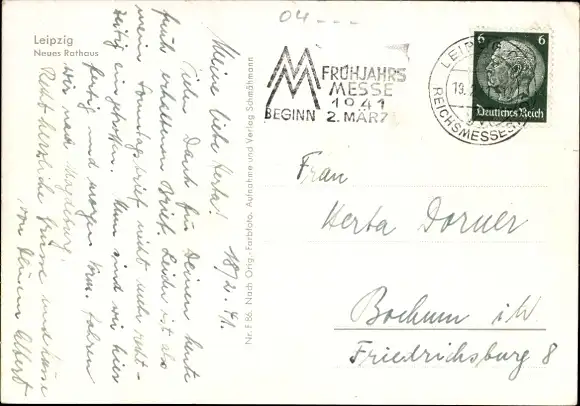 04---
Leipzig
Neues Rathaus
FRÜHJAHRS
MESSE
1941
BEGINN 2. MÄRZ
LEIPZIG
19.
REICHSMESSESTADT
6 6
Deutsches Reich
18/2.41.
Meine liebe Herta!
Vielen Dank für Deinen heute
früh erhaltenen Brief. Leider ist also
mein Sonntagsbrief nicht mehr recht-
zeitig eingetroffen. Nun sind wir hier
fertig und morgen Vorm. fahren
wir nach Magdeburg.
Recht herzliche Grüsse und Küsse
von Deinem Albert
Nr. F 86. Nach Orig.-Farbfoto. Aufnahme und Verlag Schmähmann
Frau
Herta Dorner
Bochum i. W.
Friedrichsburg 8